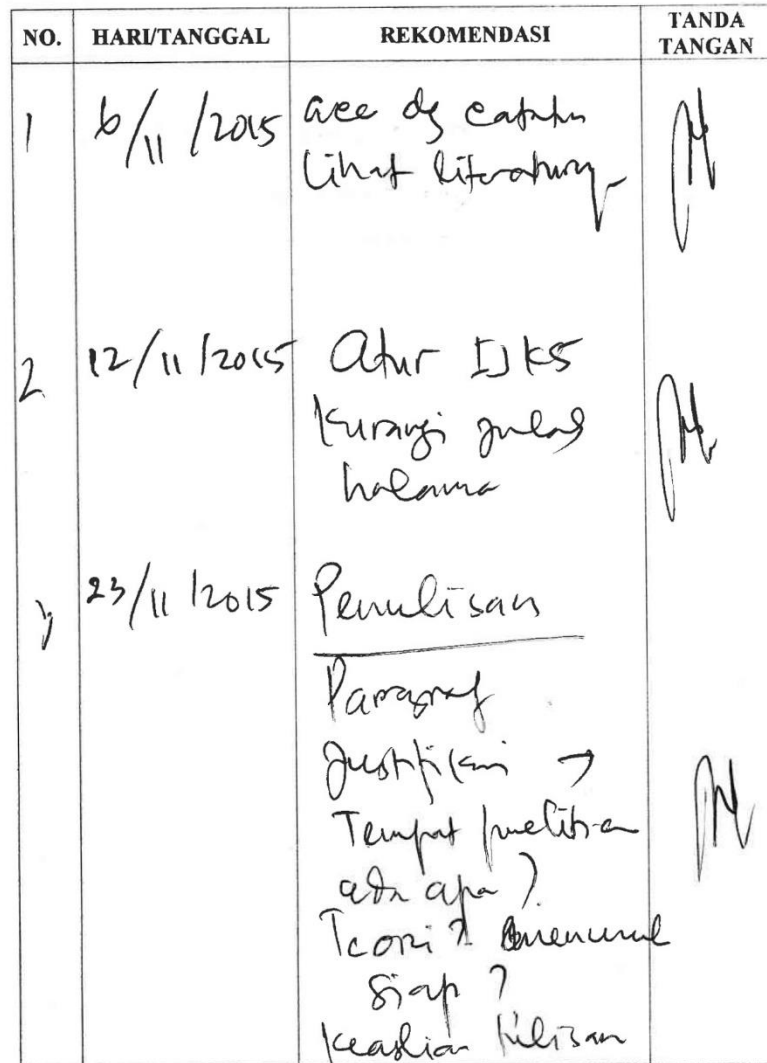 NO. HARI/TANGGAL REKOMENDASI TANDA TANGAN
1 6/11/2015 acc dg catatan
Lihat literaturnya
2 12/11/2015 Atur
Kurangi jumlah
halaman
3 23/11/2015 Penulisan
Paragraf
Justifikasi →
Tempat penelitian
ada apa?
Teori? menurut
siapa?
Keaslian tulisan